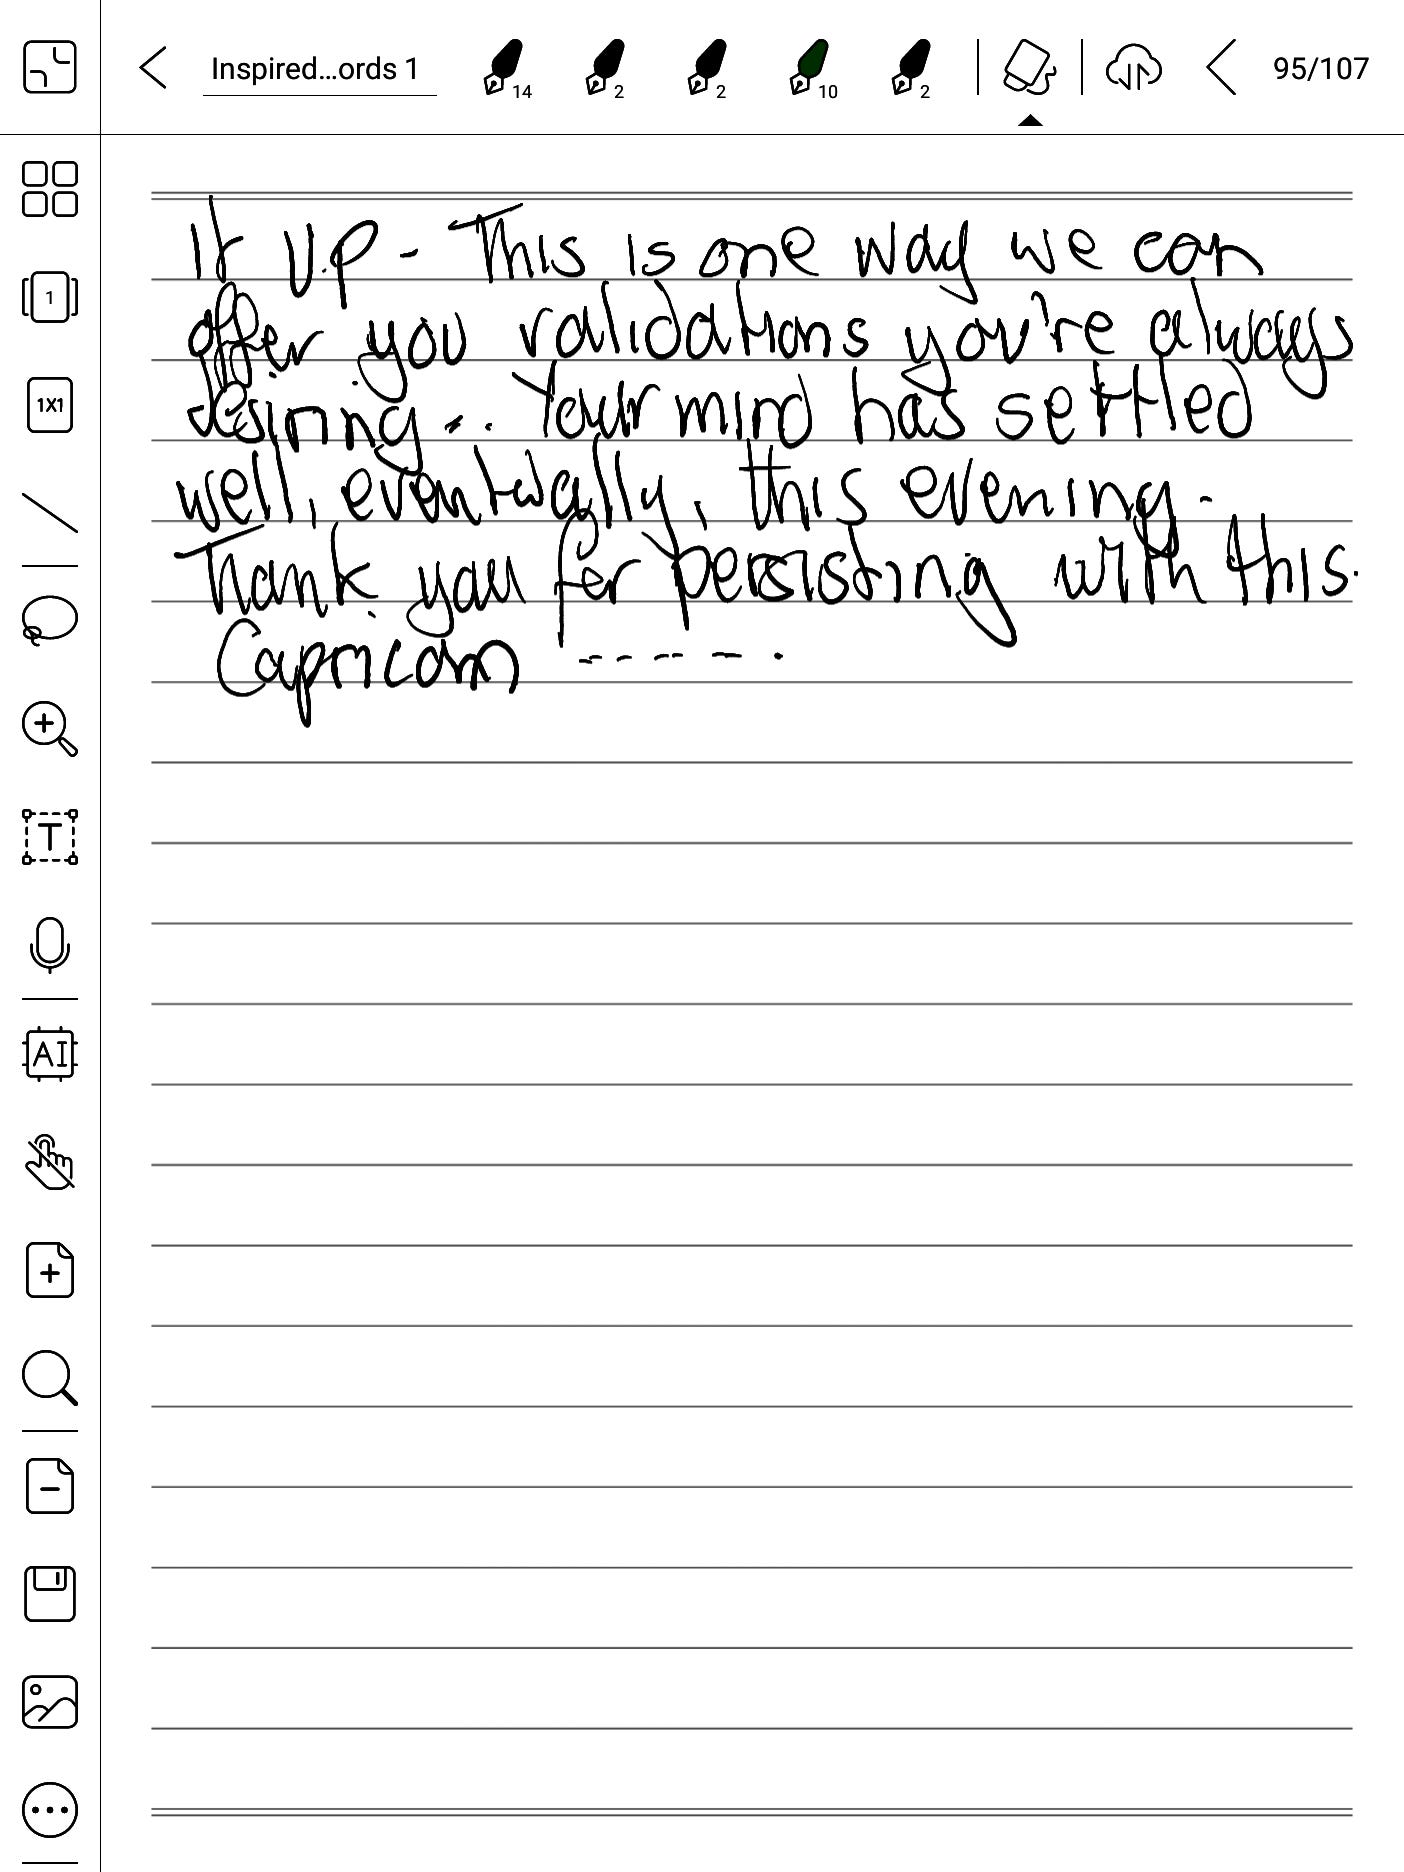 Inspired...ords 1
14
2
2
10
2
95/107
1
1X1
T
AI
It up - This is one way we can
offer you validations you're always
desiring... Your mind has settled
well, eventually, this evening.
Thank you for persisting with this.
Capricorn -----.